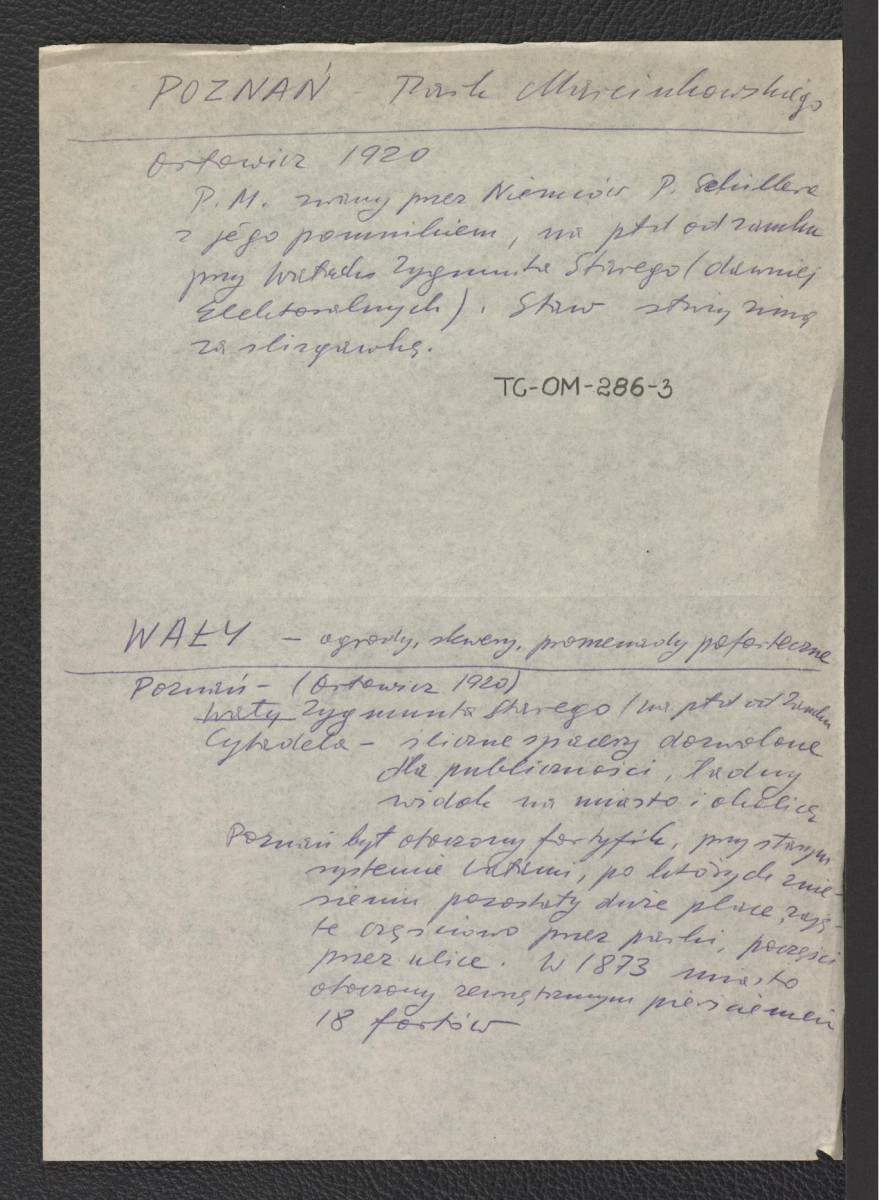 POZNAŃ - Park Marcinkowskiego
Orłowicz 1920
P. M. zwany przez Niemców P. Schillera
z jego pomnikiem, na płd od zamku
przy Wałach Zygmunta Starego (dawniej
Elektoralnych). Staw służy zimą
za ślizgawkę.
TG-OM-286-3
WAŁY - ogrody, skwery, promenady poforteczne
Poznań - (Orłowicz 1920)
Wały Zygmunta Starego / na płd od Zamku
Cytadela - śliczne spacery dozwolone
dla publiczności, ładny
widok na miasto i okolicę
Poznań był otoczony fortyfik, przy starym
systemie wałami, po których znie-
sieniu pozostały duże place, zaję-
te częściowo przez parki, poczęści
przez ulice. W 1873 miasto
otoczony zewnętrznym pierścieniem
18 fortów